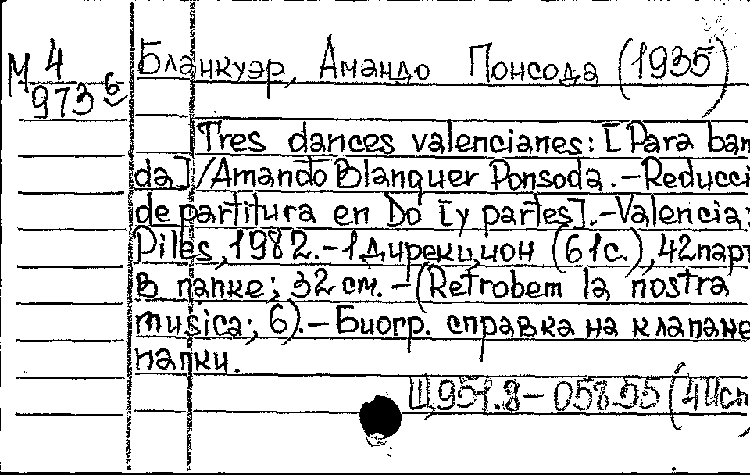 М 4
973 б
Бланкуэр, Амандо Понсода (1935)
Tres dances valencianes: [Para ban
da]/Amando Blanquer Ponsoda.-Reducci
de partitura en Do [y partes].-Valencia:
Piles, 1982.-1 дирекцион (61с.), 42парт
в папке; 32 см. - (Retrobem la nostra
musica; 6).- Биогр. справка на клапане
папки.
Щ951.8-058.55 (4Исп